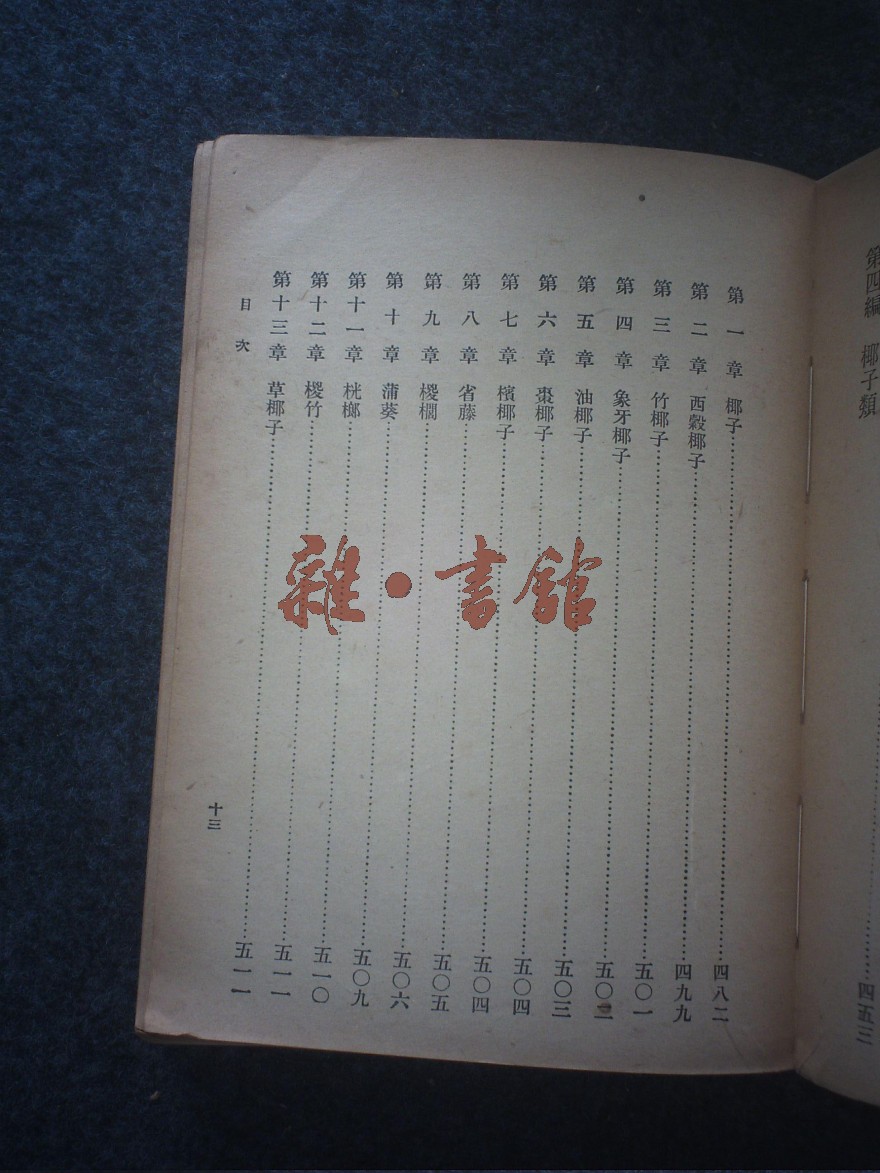 第四編 椰子類
四五三
第一章 椰子……四八二
第二章 西穀椰子……四九九
第三章 竹椰子……五〇一
第四章 象牙椰子……五〇二
第五章 油椰子……五〇三
第六章 棗椰子……五〇四
第七章 檳椰子……五〇四
第八章 省藤……五〇五
第九章 椶櫚……五〇六
第十章 蒲葵……五〇九
第十一章 桄榔……五一〇
第十二章 椶竹……五一一
第十三章 草椰子……五一一
目次
十三
雜·書館